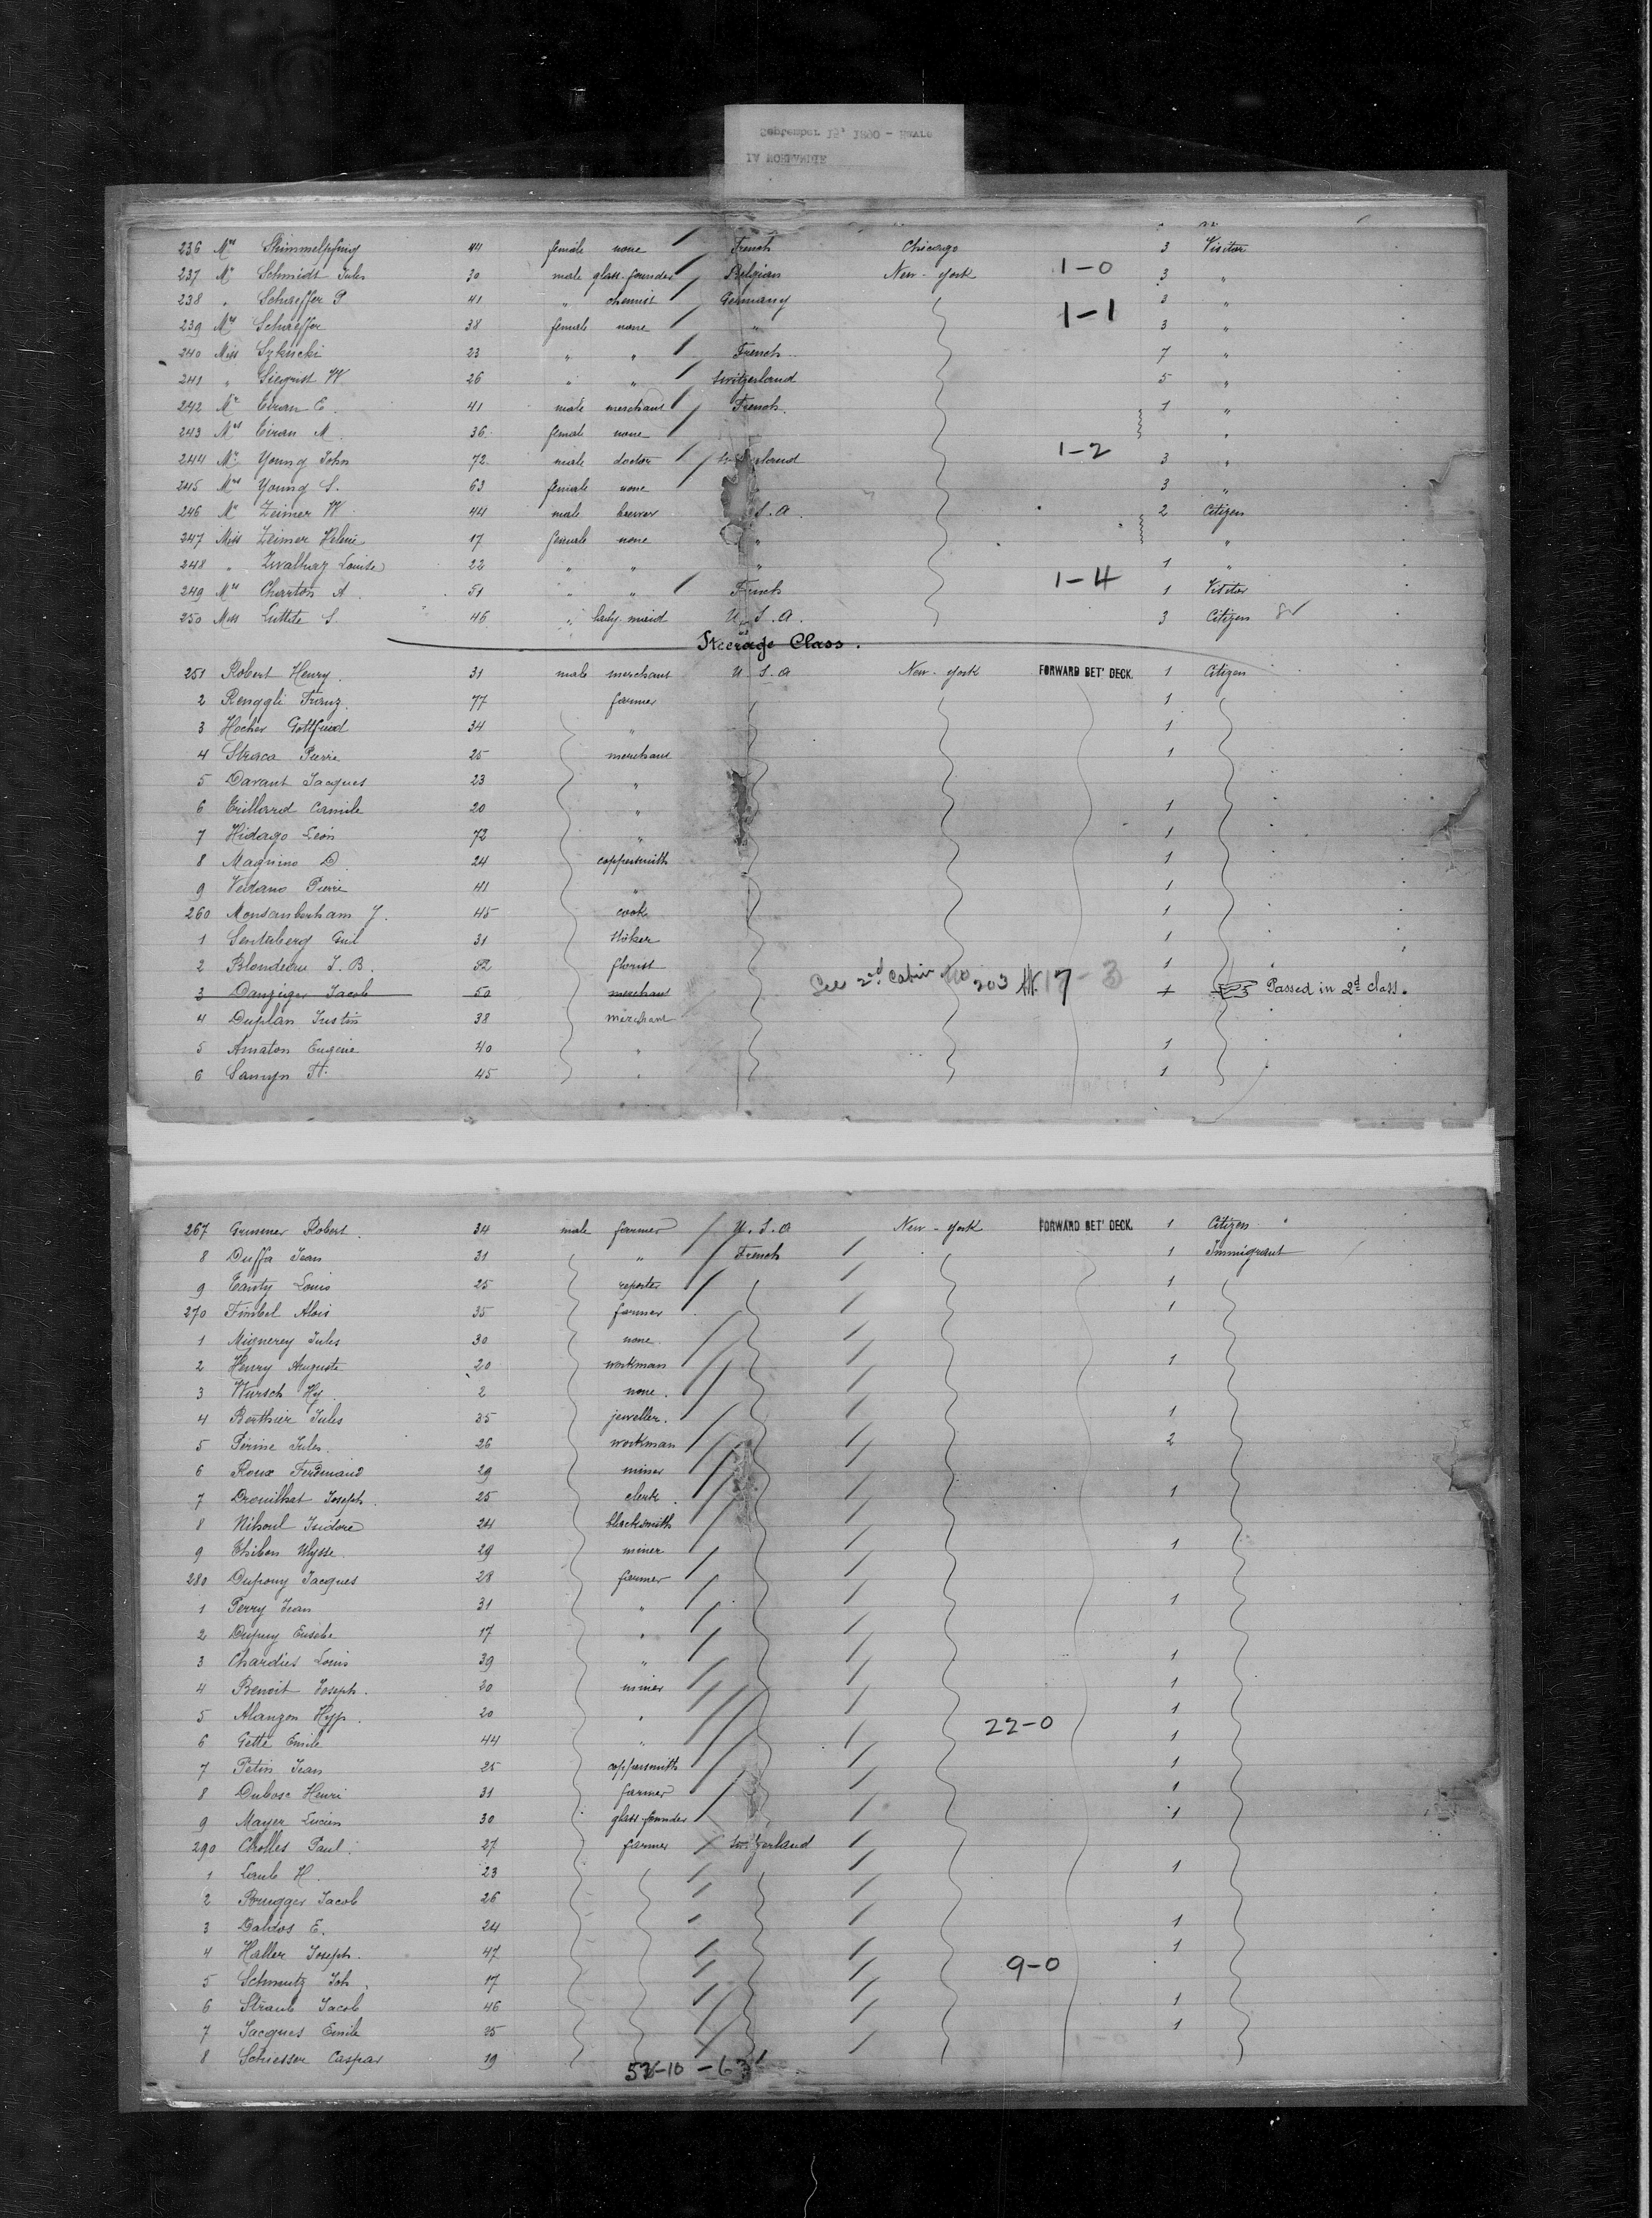 September 15, 1890 - Havre
LA NORMANDIE
236 Mrs 44 female none French Chicago 3 Visitor
237 Mr Schmidt Jules 30 male glass-founder Belgian New-York 1-0 3 "
238 " Schaeffer P 41 " chemist Germany 3 "
239 Mrs Schaeffer 38 female none " 1-1 3 "
240 Miss 23 " " French 7 "
241 " Siegrist W. 26 " " Switzerland 5 "
242 Mr E. 41 male merchant French. 1 "
243 Mrs M. 36 female none "
244 Mr Young John 72 male doctor 1-2 3 "
245 Mrs Young S. 63 female none 3 "
246 Mr Zeimer W. 44 male brewer S. A. 2 Citizen
247 Miss Zeimer Helene 17 female none " "
248 " Louise 22 " " " 1 "
249 Mrs Charton A. 51 " " French 1-4 1 Visitor
250 Miss S. 46 " lady-maid U. S. A. 3 Citizen
Steerage Class.
251 Robert Henry. 31 male merchant U. S. A New-York FORWARD BET' DECK. 1 Citizen
2 Renggli Franz. 77 farmer 1
3 Hocher Gottfried 34 " 1
4 Straca Pierre 25 merchant 1
5 Davant Jacques 23 "
6 Camile 20 " 1
7 Hidago Leon 72 " 1
8 Magnino D. 24 coppersmith 1
9 Vedano Pierre 41 " 1
260 J. 45 cook 1
1 31 stoker 1
2 Blondeau J. B. 52 florist 1
3 Danziger Jacob 50 merchant See 2nd Cabin No 203 17-3 1 Passed in 2d class.
4 Duplan Justin 38 merchant
5 Amaton Eugene 40 " 1
6 Samyn H. 45 " 1
267 Robert. 34 male farmer U. S. A New-York FORWARD BET' DECK. 1 Citizen
8 Duffa Jean 31 " French 1 Immigrant
9 Louis 25 reporter 1
270 Fimbel Alois 35 farmer 1
1 Mignerey Jules 30 none.
2 Henry Auguste 20 workman 1
3 Wursch Hy. 2 none.
4 Berthier Jules 35 jeweller. 1
5 Perine Jules. 26 workman 2
6 Roux Ferdinand 29 miner
7 Drouilhat Joseph. 25 clerk. 1
8 Nihoul Isidore 24 blacksmith
9 Ulysse. 29 miner 1
280 Dupouy Jacques 28 farmer
1 Perry Jean 31 " 1
2 Dupuy Eusebe 17 "
3 Chardies Louis 39 " 1
4 Benoit Joseph. 20 miner 1
5 Alanzon Hyp. 20 " 22-0 1
6 Gette Emile 44 " 1
7 Petin Jean 25 coppersmith 1
8 Dubosc Henri 31 farmer 1
9 Mayer Lucien 30 glass-founder 1
290 Paul. 27 farmer Switzerland
1 Laub H. 23 1
2 Brugger Jacob 26
3 Daldos E. 24 1
4 Haller Joseph. 47 1
5 Schmutz Joh. 17 9-0
6 Straub Jacob 46 1
7 Jacques Emile 25 1
8 Schiesser Caspar 19
52-10-63